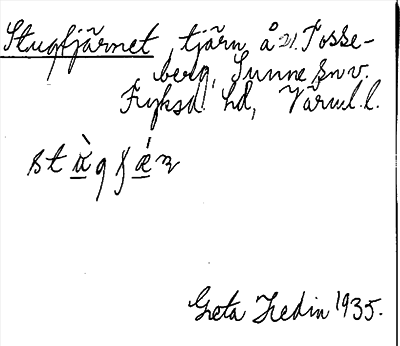 Stugtjärnet, tjärn å 21. Tosse-
berg, Sunne sn v.
Fryksd. hd, Värml. l.
Greta Hedin 1935.